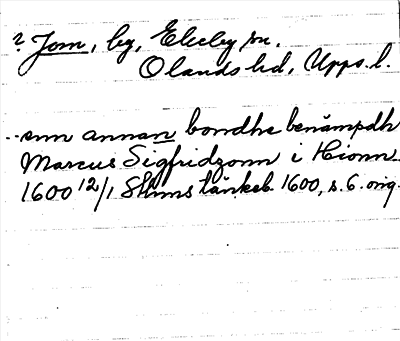 ? Jom, by, Ekeby sn.
Olands hd, Upps. l.
..enn annan bondhe benämpdh
Marcus Sigfridzonn i Hionn
1600 12/1 Sthms tänkeb. 1600, s. 6. orig.